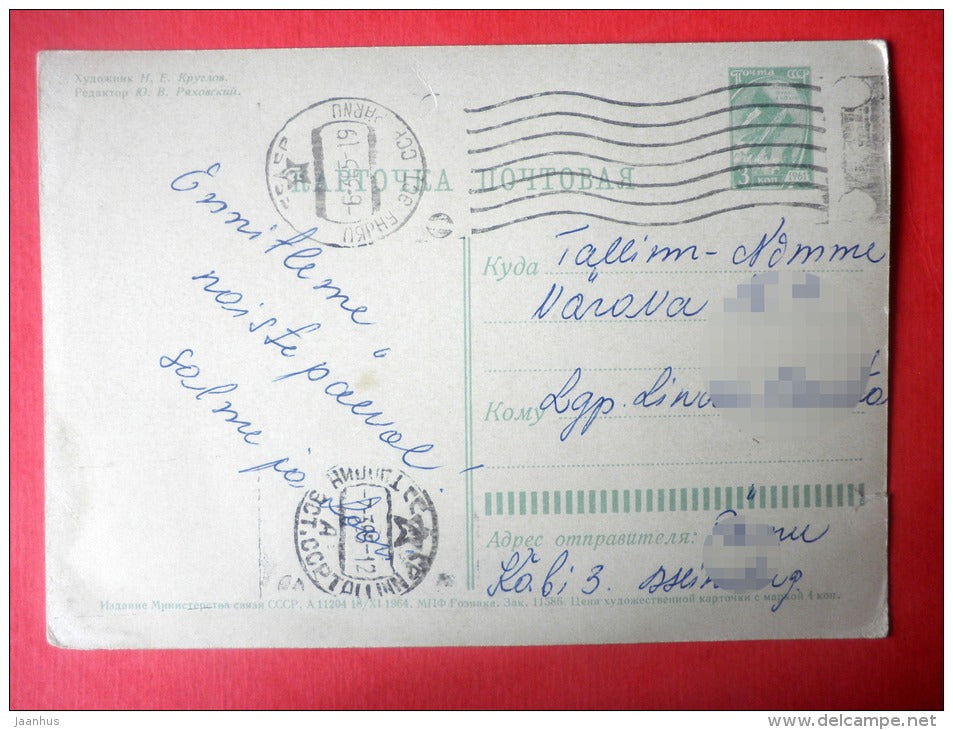 Художник Н. Е. Круглов.
Редактор Ю. В. Ряховский.
ПОЧТА СССР
3 КОП
1961
PÄRNU
-6-3-65-19
КАРТОЧКА ПОЧТОВАЯ
Õnnitleme
naiste päeval
Salme ja
Куда Tallinn - Nõmme
Värava
Кому Lgp. Lin
Адрес отправителя:
Käbi 3.
ЭСТ.ССР
Издание Министерства связи СССР. А 11204 18/XI 1964. МПФ Гознака. Зак. 11586. Цена художественной карточки с маркой 4 коп.
jaanhus
www.delcampe.net